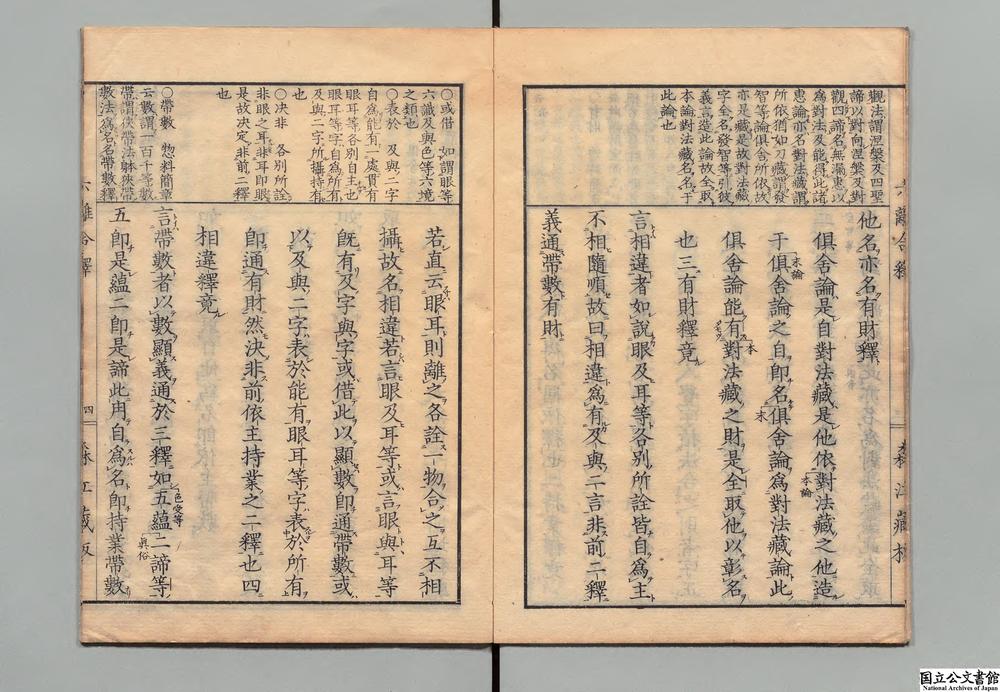 觀法謂涅槃及四聖
諦以對向涅槃及對
觀四諦名無漏惠以
爲對法及能得此諸
惠論亦名對法藏謂
所依猶如刀藏謂發
智等論俱舍所依故
亦是藏是故對法藏
字全名發智等引彼
義言造此論故全取
本論對法藏名名于
此論也
他名亦名有財釋
俱舍論是自對法藏是他依對法藏之他造
本論
于俱舍論之自即名俱舍論爲對法藏論此
末論
末
俱舍論能有對法藏之財是全取他以彰名
本
也三有財釋竟
言相違者如說眼及耳等各別所詮皆自爲主
不相隨順故曰相違爲有及與二言非前二釋
義通帶數有財
〇或借 如謂眼等
六識及與色等六境
之類也
〇表於 及與二字
自爲能有一處貫有
眼耳等各別自主也
眼耳等字自爲所有
及與二字所攝持有
也
〇決非 各別所詮
非眼之耳非耳即眼
是故決定非前二釋
也
〇帶數 惣料簡章
云數謂一百千等數
帶謂俠帶法躰俠帶
數法爲名名帶數釋
若直云眼耳則離之各詮一物合之互不相
攝故名相違若言眼及耳等或言眼與耳等
旣有及字與字或借此以顯數即通帶數或
以及與二字表於能有眼耳等字表於所有
即通有財然決非前依主持業之二釋也四
相違釋竟
言帶數者以數顯義通於三釋如五蘊二諦等
色受等
眞俗
五即是蘊二即是諦此用自爲名即持業帶數
六離合釋
四
國立公文書館
National Archives of Japan